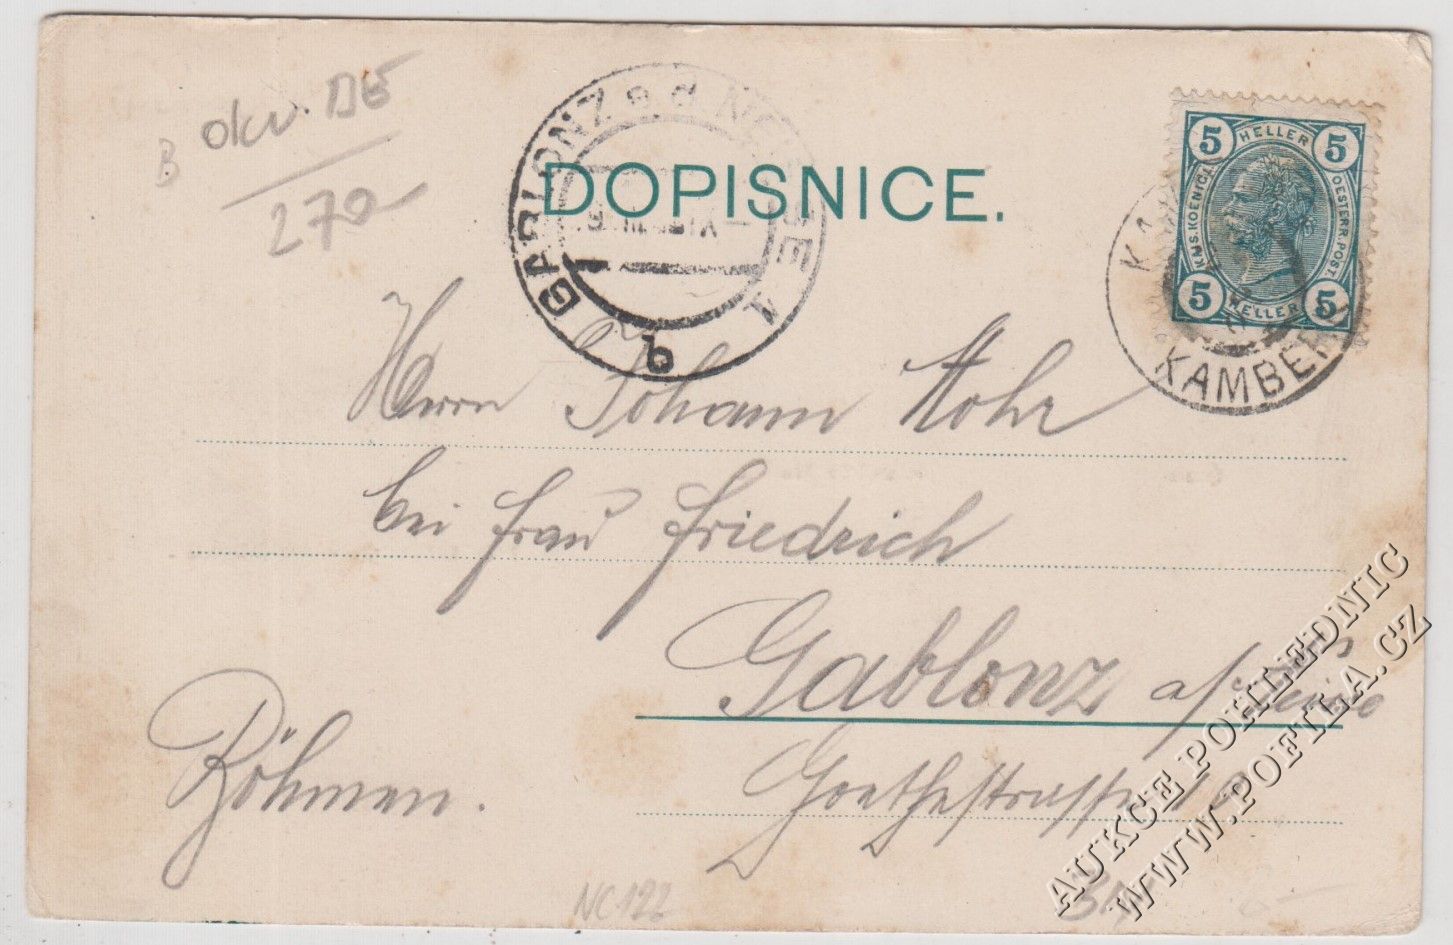 B okv. DE
270-
GABLONZ a. d. NEISSE 1
b
DOPISNICE.
5 HELLER 5
KAIS. KOENIGL. OESTERR. POST.
5 HELLER 5
KAMBERK
Herrn Johann Mohr
bei Frau Friedrich
Gablonz a/Neisse
Goethestrasse 18
Böhmen.
NC 122
AUKCE POHLEDNIC
WWW.POFILA.CZ